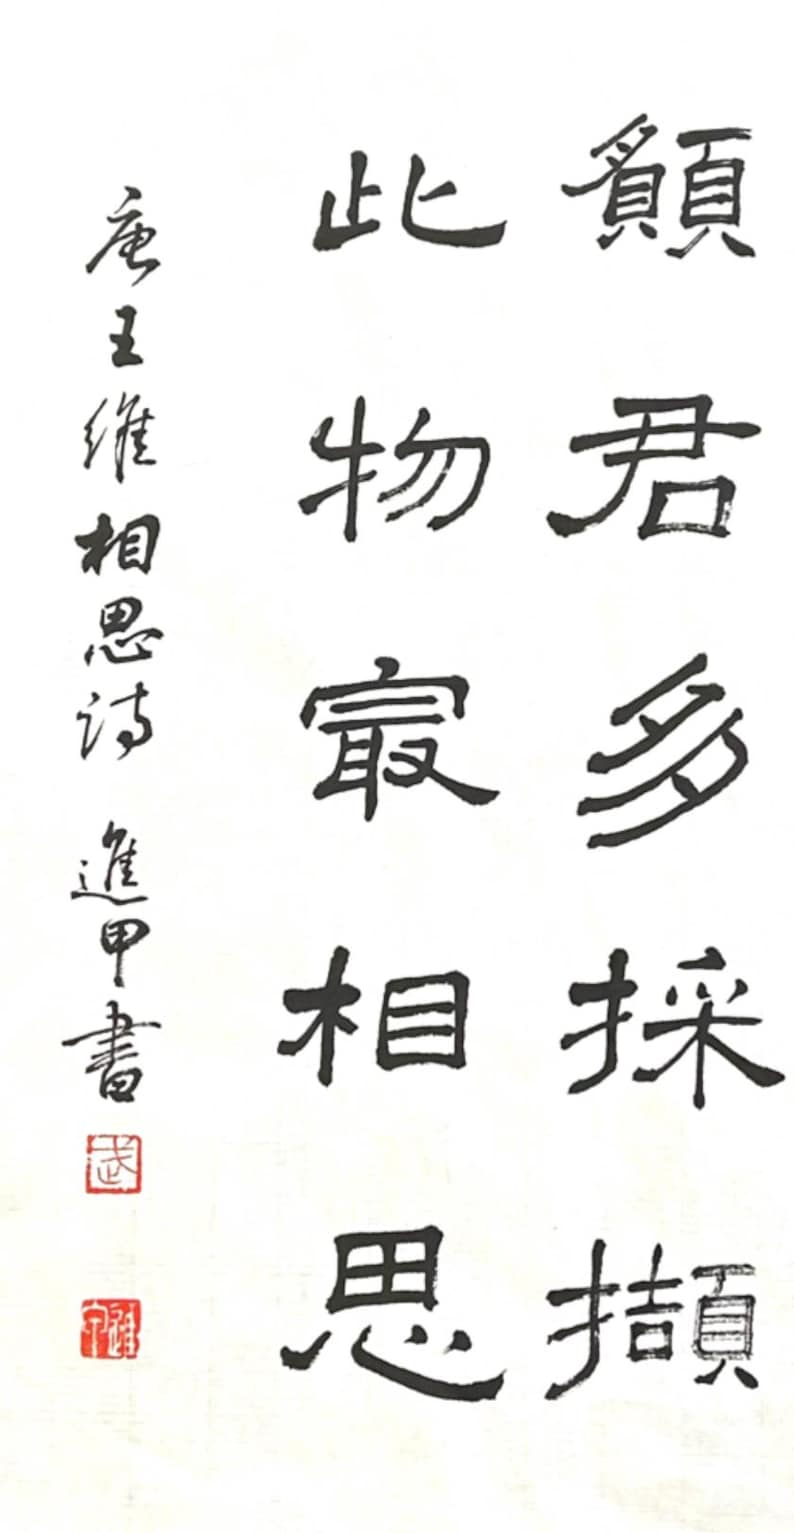 願君多採擷
此物最相思
唐王維相思詩 進甲書
武